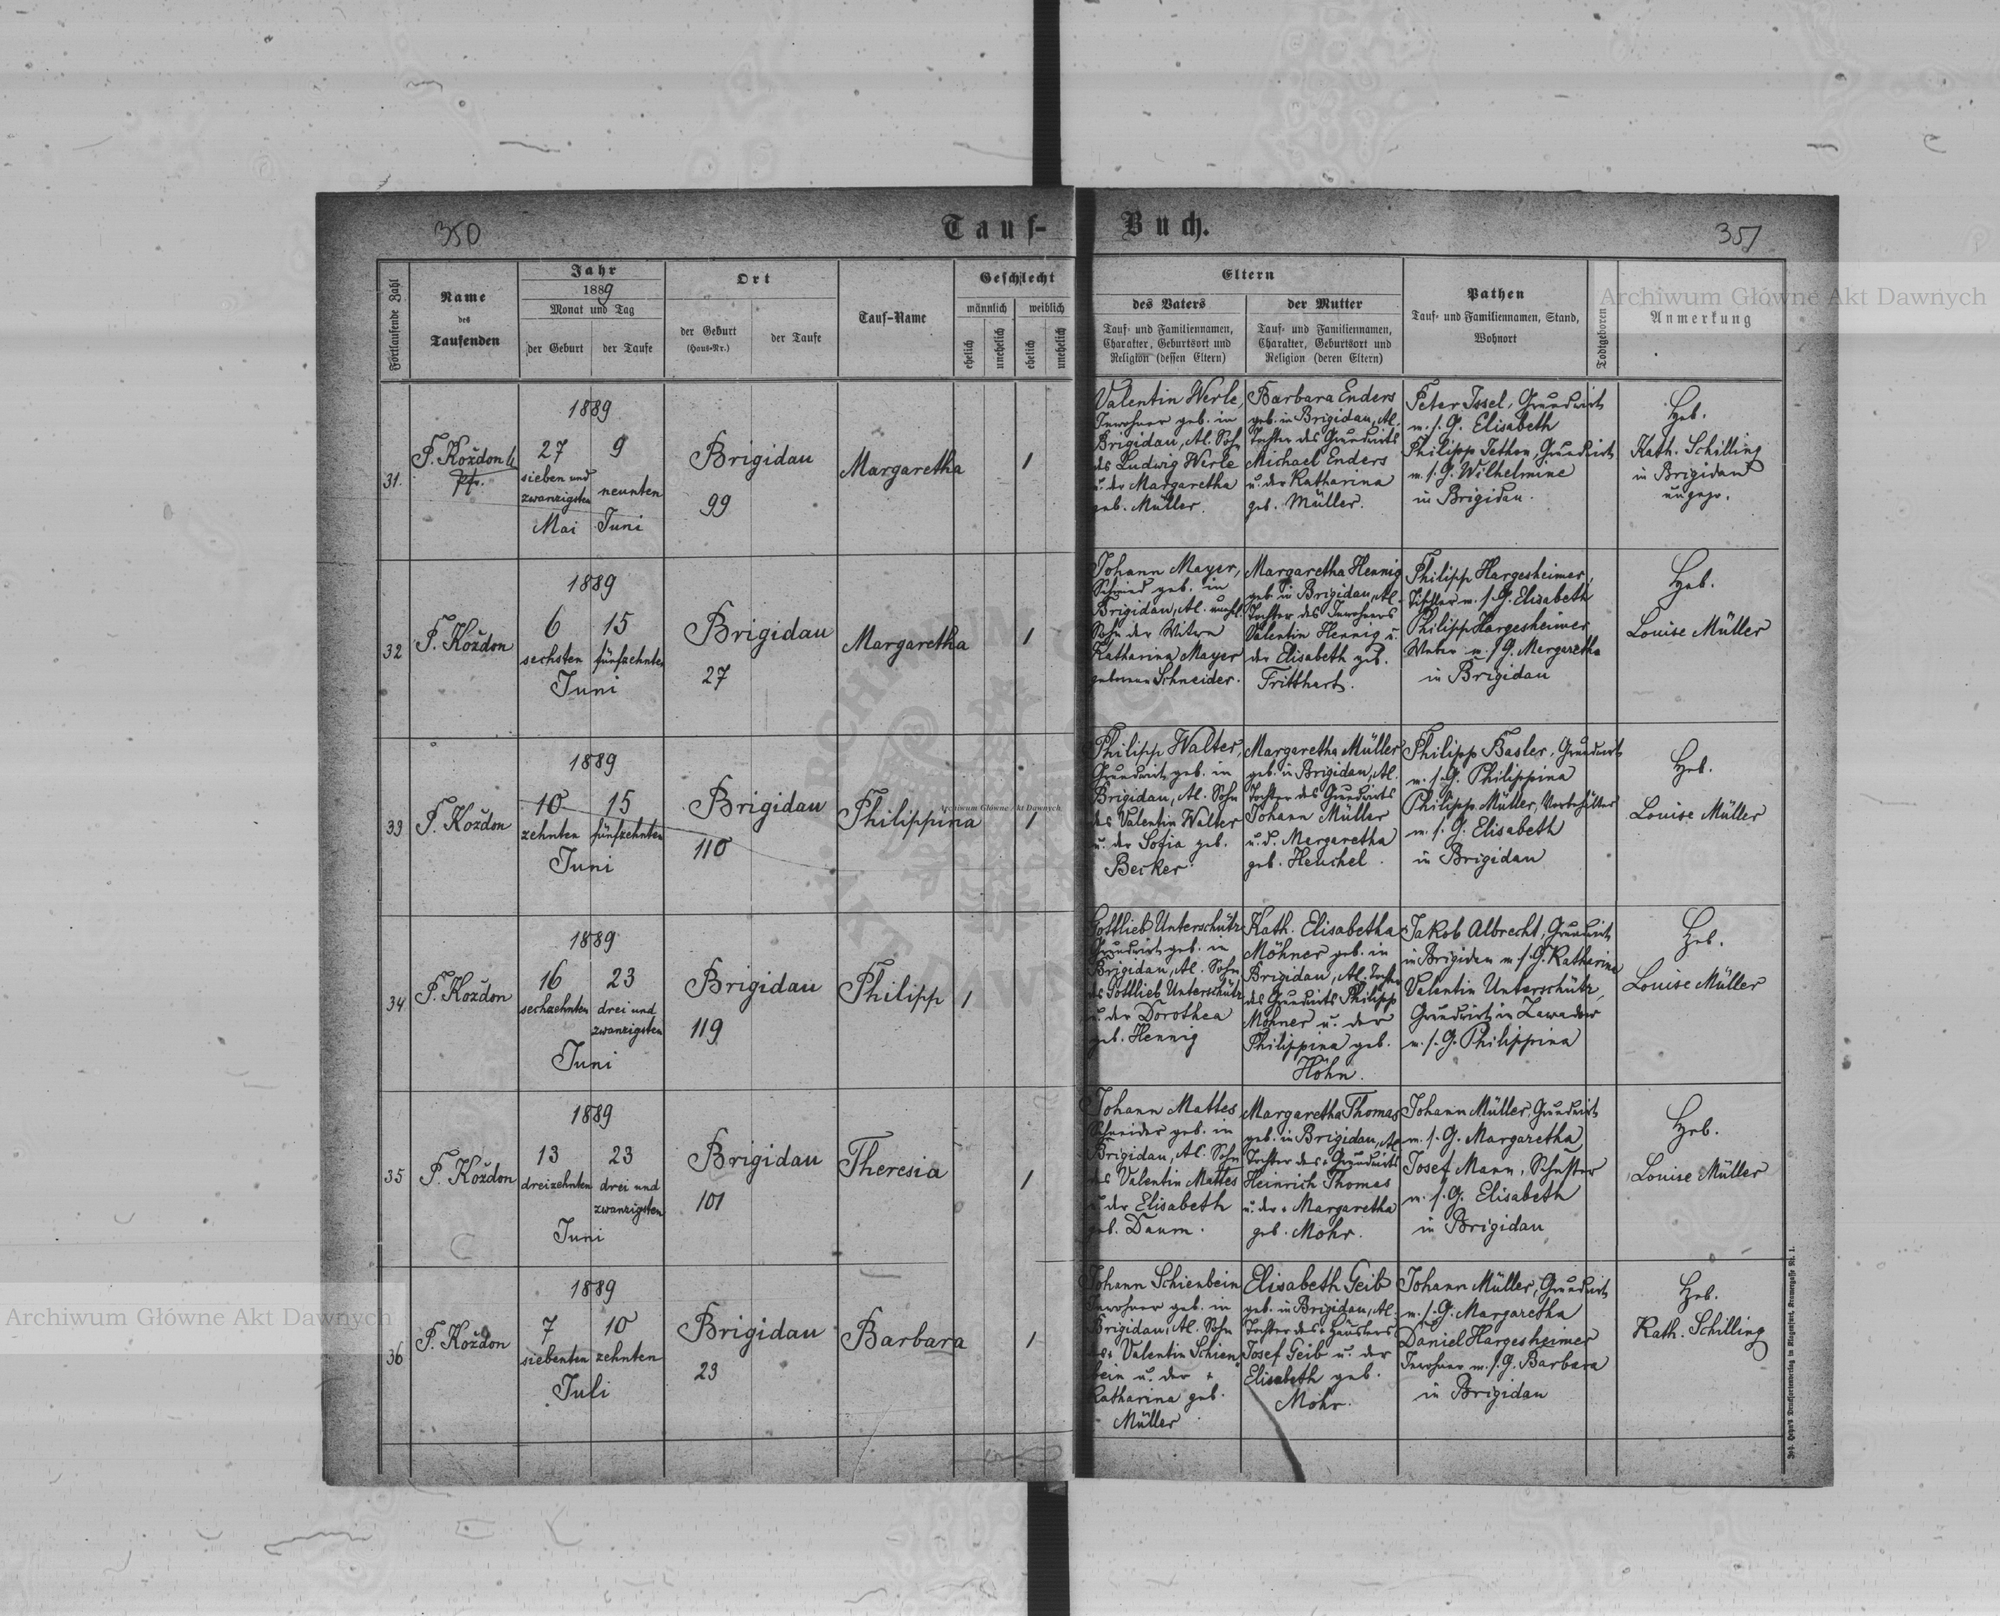 350
Tauf-
Buch.
351
Fortlaufende Zahl
Name
des
Taufenden
Jahr
1889
Monat und Tag
der Geburt
der Taufe
Ort
der Geburt
(Haus-Nr.)
der Taufe
Tauf-Name
Geschlecht
männlich
weiblich
ehelich
unehelich
ehelich
unehelich
Eltern
des Vaters
Tauf- und Familiennamen,
Charakter, Geburtsort und
Religion (dessen Eltern)
der Mutter
Tauf- und Familiennamen,
Charakter, Geburtsort und
Religion (deren Eltern)
Pathen
Tauf- und Familiennamen, Stand,
Wohnort
Todtgeboren
Anmerkung
31.
F. Koždon
Pfr.
1889
27
9
sieben und
zwanzigsten
neunten
Mai
Juni
Brigidau
99
Margaretha
1
Valentin Werle,
Inwohner geb. in
Brigidau, Al. Sohn
des Ludwig Werle
u. der Margaretha
geb. Müller.
Barbara Enders
geb. in Brigidau, Al.
Tochter des Grundwirts
Michael Enders
u. der Katharina
geb. Müller.
Peter Issel, Grundwirt
m. s. G. Elisabeth
Philipp Jethon, Grundwirt
m. s. G. Wilhelmine
in Brigidau.
Heb.
Kath. Schilling
in Brigidau
ungepr.
32
F. Koždon
1889
6
15
sechsten
fünfzehnten
Juni
Brigidau
27
Margaretha
1
Johann Mayer,
Schmied geb. in
Brigidau, Al. unehl.
Sohn der Witwe
Katharina Mayer
geborenen Schneider.
Margaretha Hennig
geb. in Brigidau, Al.
Tochter des Inwohners
Valentin Hennig u.
der Elisabeth geb.
Tritthart.
Philipp Hargesheimer,
Tischler m. s. G. Elisabeth
Philipp Hargesheimer
Weber m. s. G. Margaretha
in Brigidau
Heb.
Louise Müller
33
F. Koždon
1889
10
15
zehnten
fünfzehnten
Juni
Brigidau
110
Philippina
1
Philipp Walter,
Grundwirt geb. in
Brigidau, Al. Sohn
des Valentin Walter
u. der Sofia geb.
Becker.
Margaretha Müller
geb. in Brigidau, Al.
Tochter des Grundwirts
Johann Müller
u. d. Margaretha
geb. Henchel.
Philipp Basler, Grundwirt
m. s. G. Philippina
Philipp Müller,
m. s. G. Elisabeth
in Brigidau
Heb.
Louise Müller
34
F. Koždon
1889
16
23
sechzehnten
drei und
zwanzigsten
Juni
Brigidau
119
Philipp
1
Gottlieb Unterschütz
Grundwirt geb. in
Brigidau, Al. Sohn
des Gottlieb Unterschütz
u. der Dorothea
geb. Hennig
Kath. Elisabetha
Möhner geb. in
Brigidau, Al. Tochter
des Grundwirts Philipp
Möhner u. der
Philippina geb.
Höhn.
Jakob Albrecht, Grundwirt
in Brigidau m. s. G. Katharina
Valentin Unterschütz,
Grundwirt in Zawadow
m. s. G. Philippina
Heb.
Louise Müller
35
F. Koždon
1889
13
23
dreizehnten
drei und
zwanzigsten
Juni
Brigidau
101
Theresia
1
Johann Mattes
Schneider geb. in
Brigidau, Al. Sohn
des Valentin Mattes
u. der Elisabeth
geb. Daum.
Margaretha Thomas
geb. in Brigidau, Al.
Tochter des + Grundwirts
Heinrich Thomas
u. der + Margaretha
geb. Mohr.
Johann Müller, Grundwirt
m. s. G. Margaretha
Josef Mann, Schuster
m. s. G. Elisabeth
in Brigidau
Heb.
Louise Müller
36
F. Koždon
1889
7
10
siebenten
zehnten
Juli
Brigidau
23
Barbara
1
Johann Schienbein
Inwohner geb. in
Brigidau, Al. Sohn
des + Valentin Schien-
bein u. der +
Katharina geb.
Müller
Elisabeth Geib
geb. in Brigidau, Al.
Tochter des + Häuslers
Josef Geib u. der
Elisabeth geb.
Mohr.
Johann Müller, Grundwirt
m. s. G. Margaretha
Daniel Hargesheimer
Inwohner m. s. G. Barbara
in Brigidau
Heb.
Kath. Schilling
Archiwum Główne Akt Dawnych
Archiwum Główne Akt Dawnych
Archiwum Główne Akt Dawnych